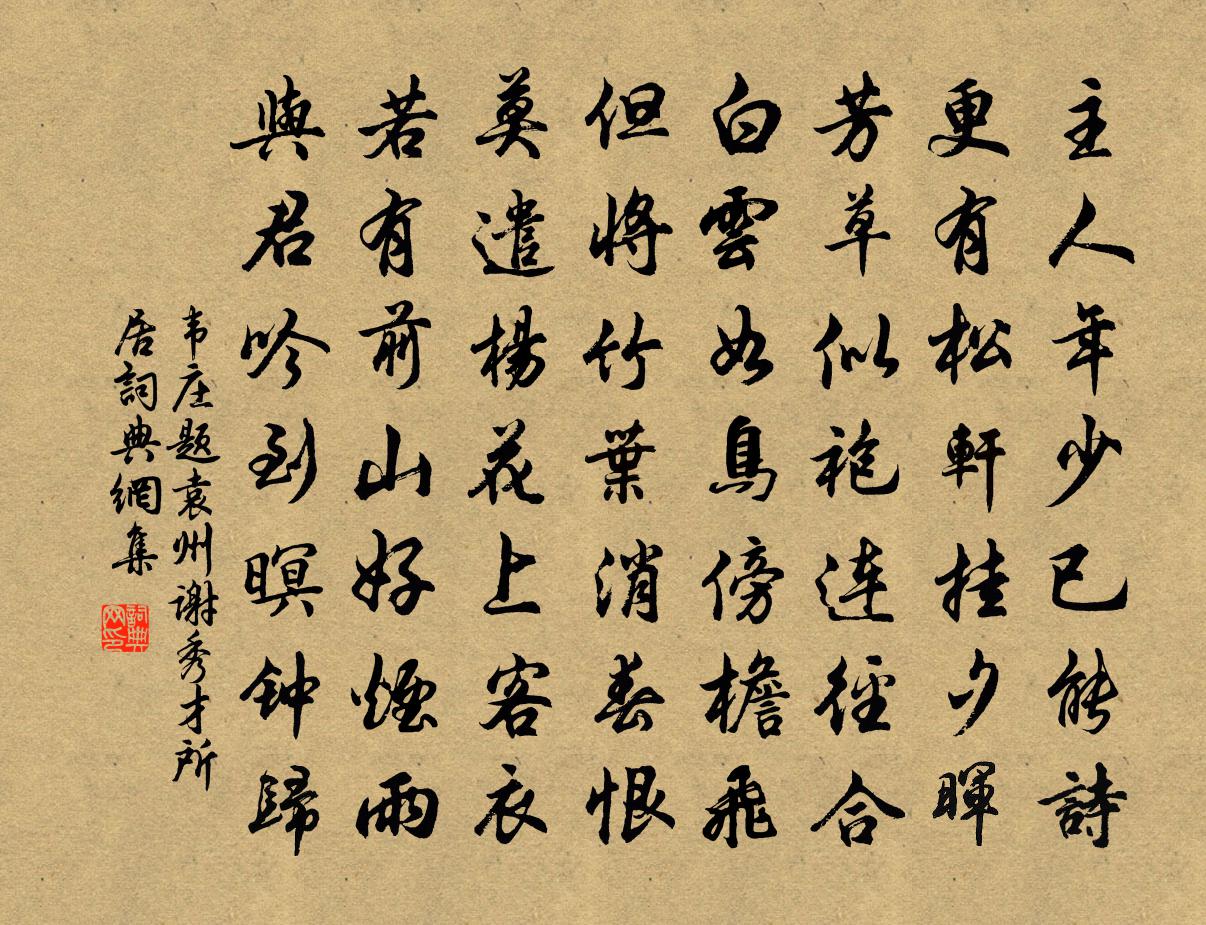 主人年少已能詩
更有松軒挂夕暉
芳草似袍連徑合
白雲如鳥傍檐飛
但將竹葉消春恨
莫遣楊花上客衣
若有前山好煙雨
與君吟到暝钟歸
韦庄题袁州谢秀才所
居詞典網集
詞典网印